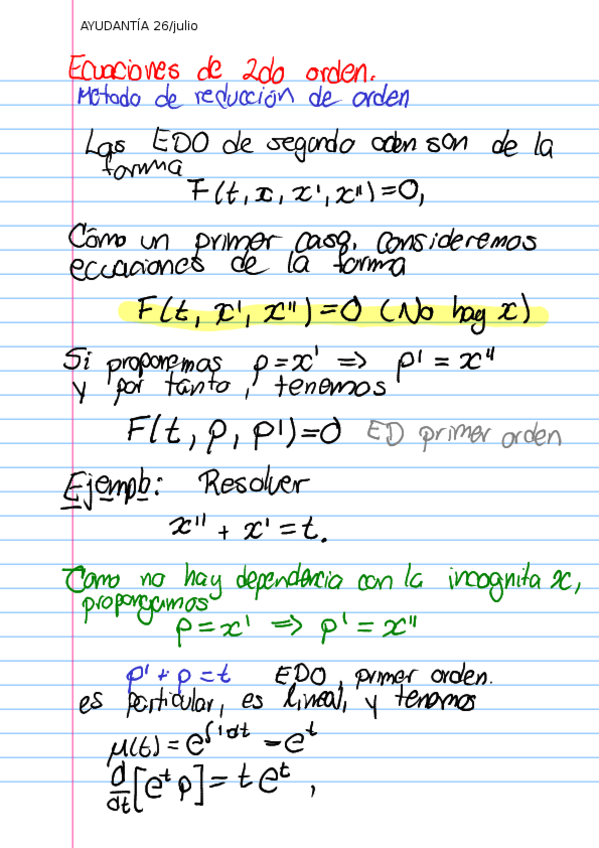 AYUDANTÍA 26/julio
Ecuaciones de 2do orden.
Metodo de reducción de orden
Las EDO de segundo oden son de la
forma
F(t, x, x', x'') = 0,
Cómo un primer caso, consideremos
eccuaciones de la forma
F(t, x', x'') = 0 (No hay x)
Si proponemos p = x' => p' = x''
y por tanto, tenemos
F(t, p, p') = 0 ED primer orden
Ejemplo: Resolver
x'' + x' = t.
Como no hay dependencia con la incognita x,
propongamos
p = x' => p' = x''
p' + p = t EDO, primer orden.
es particular, es lineal, y tenemos
μ(t) = e^{∫1dt} = e^t
d/dt [e^t p] = t e^t,